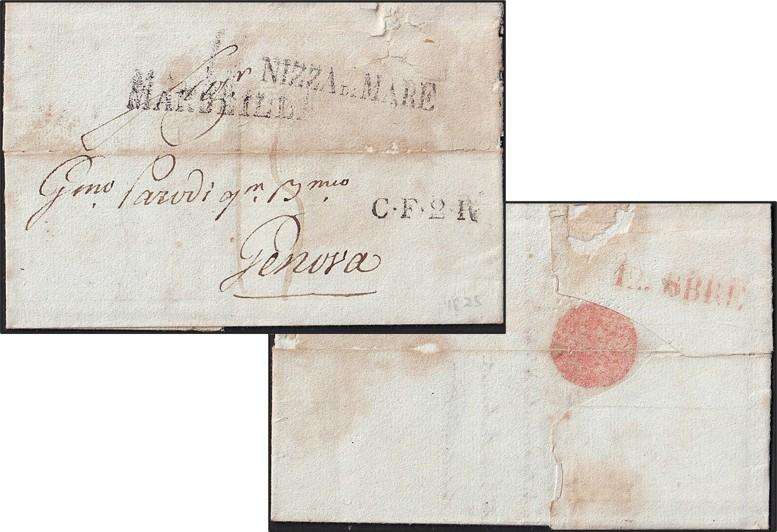 NIZZA DI MARE
MARSEILLE
Sigr
Gmo Parodi qm Bmeo
C.F.2.R
Genova
1825
12. 8BRE